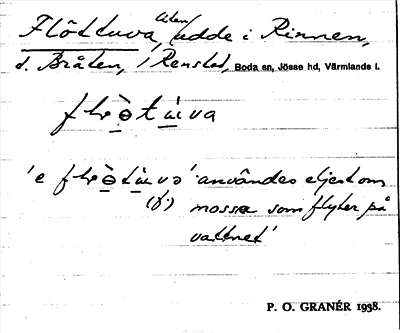 Flöttuva, liten udde i Rinnen,
s. Bråten, i Renstad, Boda sn, Jösse hd, Värmlands l.
'e
användes eljest om
mossa som flyter på
vattnet'
P. O. GRANÉR 1938.